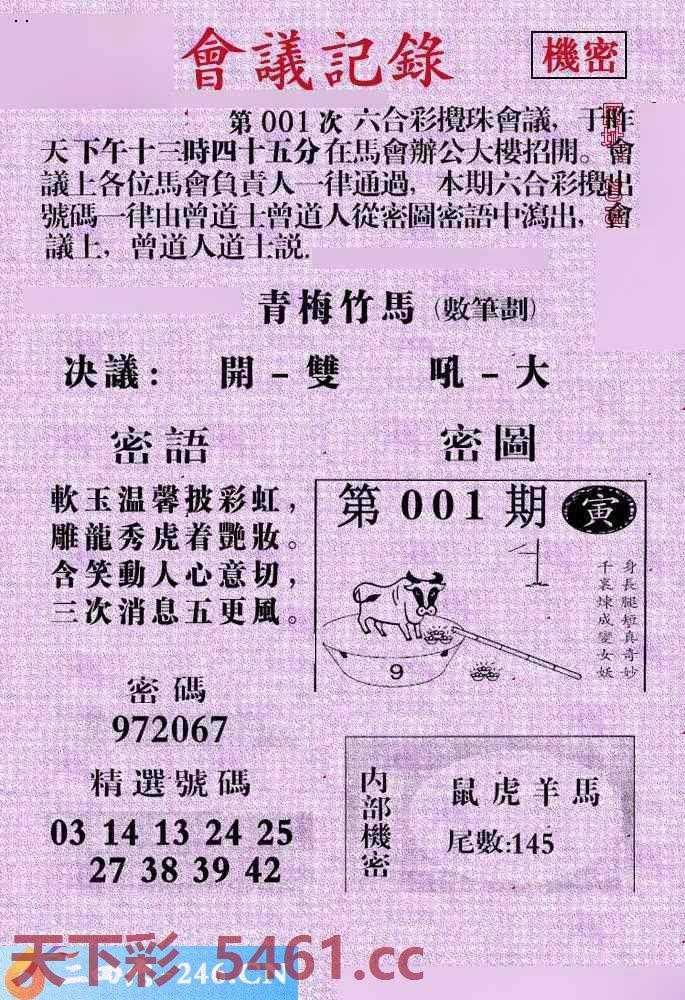 會議記錄
機密
第001次 六合彩攪珠會議，于昨
天下午十三時四十五分在馬會辦公大樓招開。會
議上各位馬會負責人一律通過，本期六合彩攪出
號碼一律由曾道士曾道人從密圖密語中瀉出，會
議上，曾道人道士説.
青梅竹馬（數筆劃）
决議：開－雙 吼－大
密語
軟玉温馨披彩虹，
雕龍秀虎着艷妝。
含笑動人心意切，
三次消息五更風。
密圖
第001期 寅
身長腿短真奇妙
千裏煉成變女妖
9
密碼
972067
精選號碼
03 14 13 24 25
27 38 39 42
内部機密
鼠虎羊馬
尾數:145
天下彩 5461.cc
246.CN